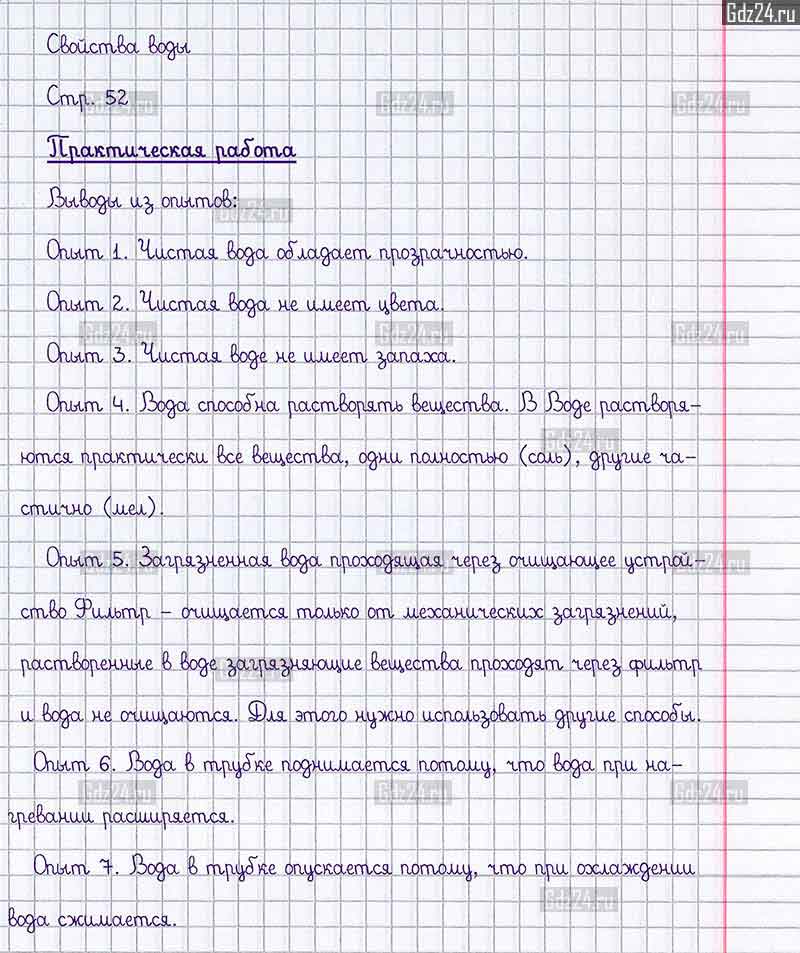 Gdz24.ru
Свойства воды
Стр. 52
Практическая работа
Выводы из опытов:
Опыт 1. Чистая вода обладает прозрачностью.
Опыт 2. Чистая вода не имеет цвета.
Опыт 3. Чистая воде не имеет запаха.
Опыт 4. Вода способна растворять вещества. В Воде растворя-
ются практически все вещества, одни полностью (соль), другие ча-
стично (мел).
Опыт 5. Загрязненная вода проходящая через очищающее устрой-
ство Фильтр – очищается только от механических загрязнений,
растворенные в воде загрязняющие вещества проходят через фильтр
и вода не очищаются. Для этого нужно использовать другие способы.
Опыт 6. Вода в трубке поднимается потому, что вода при на-
гревании расширяется.
Опыт 7. Вода в трубке опускается потому, что при охлаждении
вода сжимается.